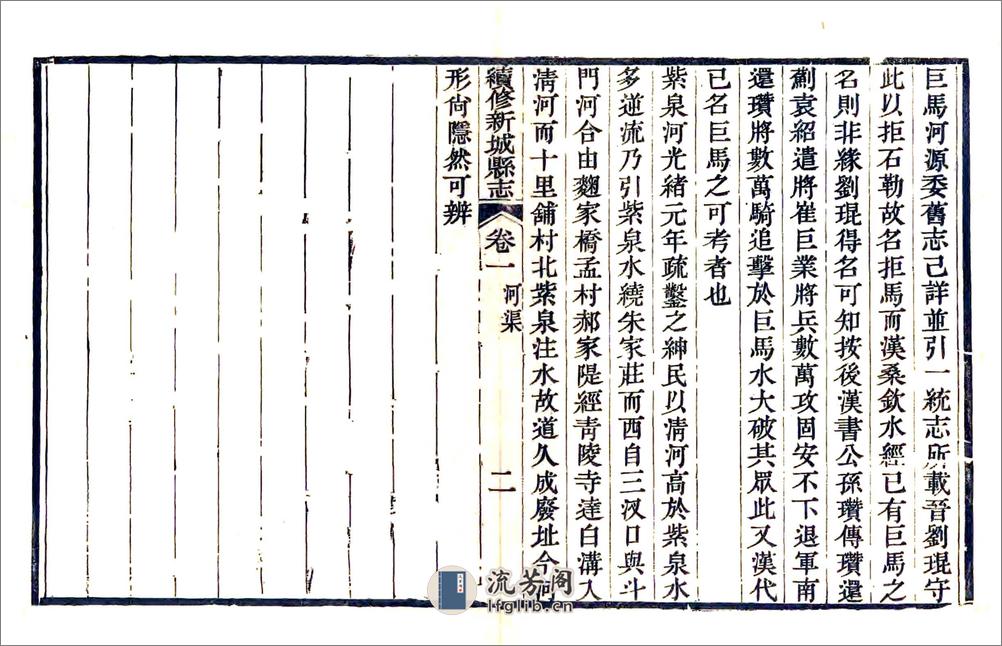 巨馬河源委舊志已詳並引一統志所載晉劉琨守
此以拒石勒故名拒馬而漢桑欽水經已有巨馬之
名則非緣劉琨得名可知按後漢書公孫瓚傳瓚還
薊袁紹遣將崔巨業將兵數萬攻固安不下退軍南
還瓚將數萬騎追擊於巨馬水大破其眾此又漢代
已名巨馬之可考者也
紫泉河光緒元年疏鑿之紳民以淸河高於紫泉水
多逆流乃引紫泉水繞朱家莊而西自三汊口與斗
門河合由麴家橋孟村郝家隄經靑陵寺達白溝入
淸河而十里舖村北紫泉注水故道久成廢址今河
形尙隱然可辨
續修新城縣志
卷一
河渠
二
流芳阁
lfglib.cn